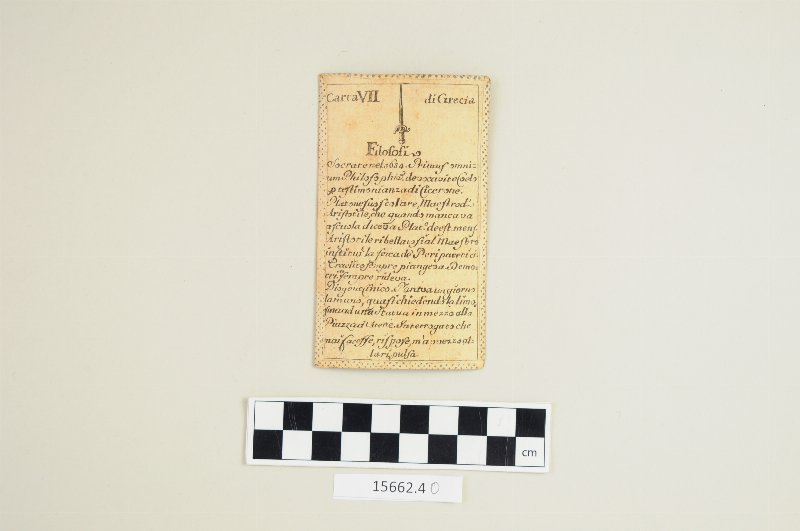 Carta VII di Grecia
Filosofi
Socrate nel 3634. Primus omni-
um Philosophia devocavit e Coelo
p testimonianza di Cicerone.
Platone suo scolare, Maestro d'
Aristotile, che quando mancava
a scuola diceva Plat.
Aristotile ribellatosi al Maestro
institui la setta de Peripatetici
Eraclito sempre piangeva. Demo-
crit sempre rideva.
Diogene Cinico. Mentre un giorno
quasi chiedendo la limo-
sina ad una Statua in mezzo alla
Piazza di Atene. Interrogato che
mai facesse, rispose, m'avvezzo al-
la ripulsa
cm
15662.40